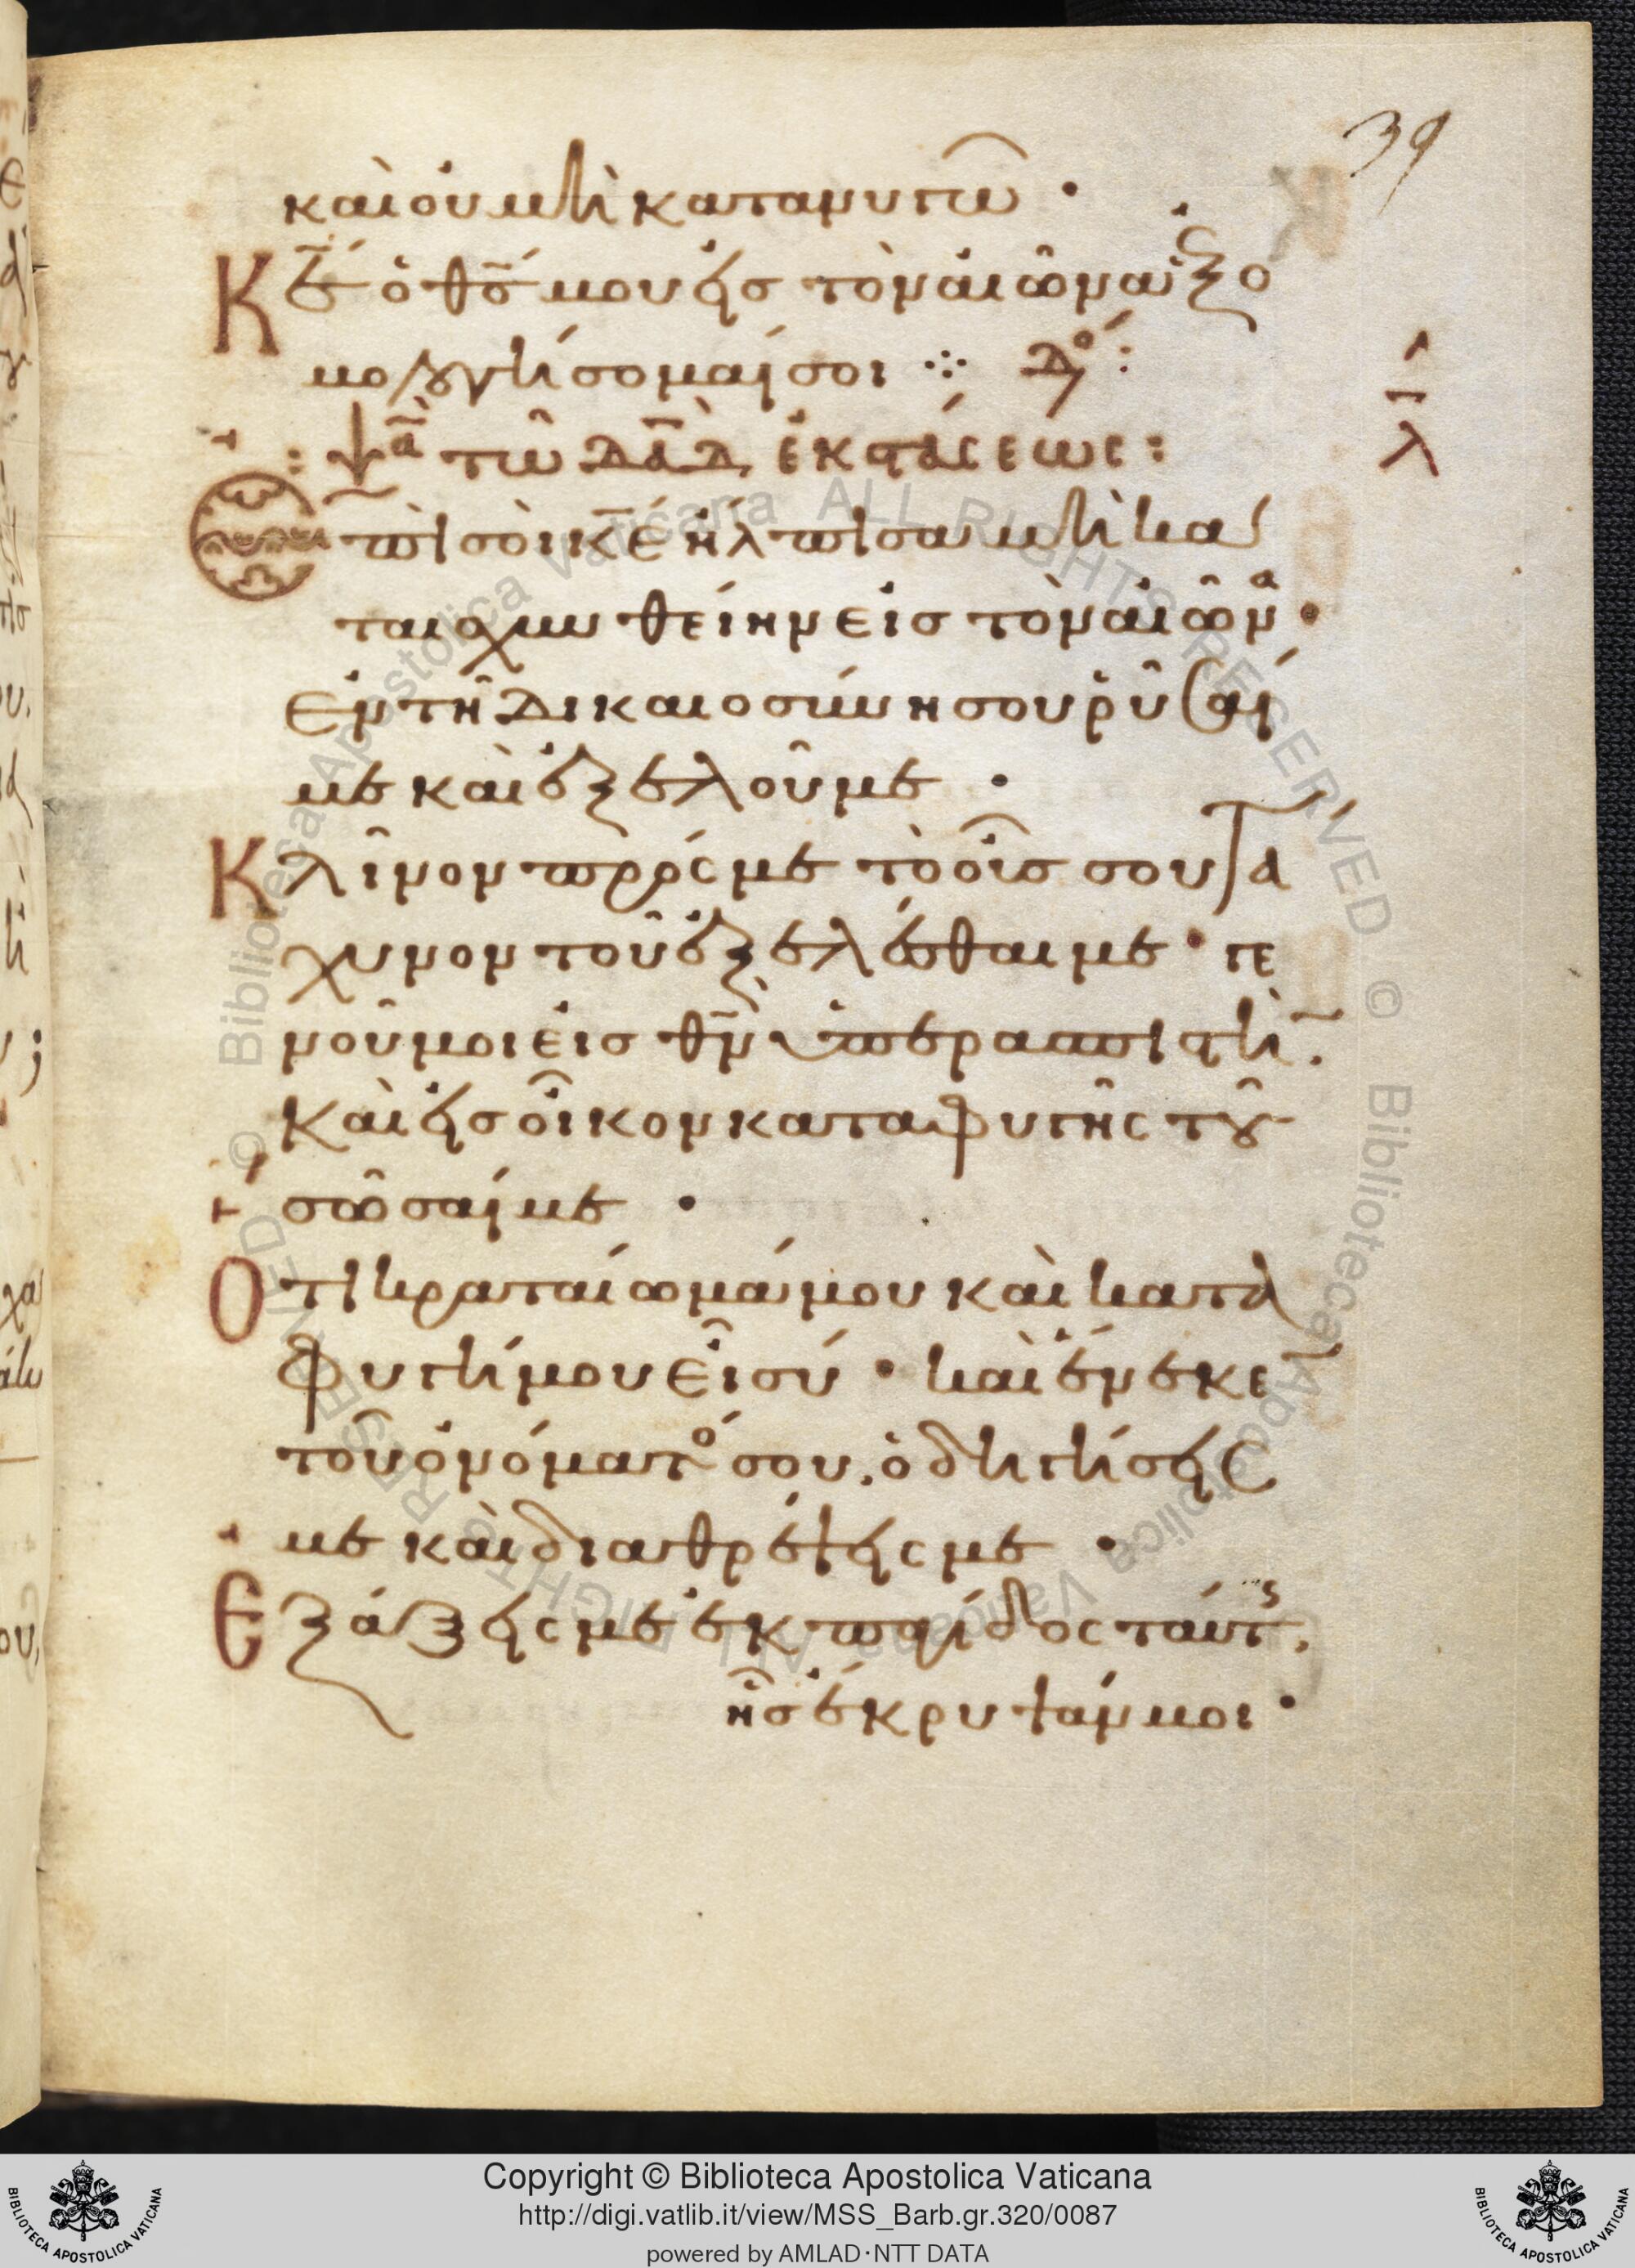 39
καὶ οὐ μὴ κατανυγῶ ·
Κε ὁ θς μου εἰς τὸν αἰῶνα ἐξο
μολογήσομαί σοι ⁘ Δο :
: ψα τῶ δαδ ἐκστάσεως :
λ
Ἐπὶ σοὶ κε ἤλπισα μὴ κα
ταισχυνθείην εἰς τὸν αἰῶνα ·
Ἐν τῆ δικαιοσύνη σου ῥῦσαί
με καὶ ἐξελοῦ με ·
Κλῖνον πρός με τὸ οὖς σου τά
χυνον τοῦ ἐξελέσθαι με · γε
νοῦ μοι εἰς θν ὑπερασπιστὴ.
Καὶ εἰς οἶκον καταφυγῆς τοῦ
σῶσαί με ·
Ὅτι κραταίωμά μου καὶ κατα
φυγή μου εἶ σύ · καὶ ἕνεκε
τοῦ ὀνόματός σου. ὁδηγήσεις
με καὶ διαθρέψεις με ·
Ἐξάξεις με ἐκ παγίδος ταύτης.
ἧς ἔκρυψάν μοι ·
Copyright © Biblioteca Apostolica Vaticana
http://digi.vatlib.it/view/MSS_Barb.gr.320/0087
powered by AMLAD·NTT DATA
BIBLIOTECA APOSTOLICA VATICANA
BIBLIOTECA APOSTOLICA VATICANA